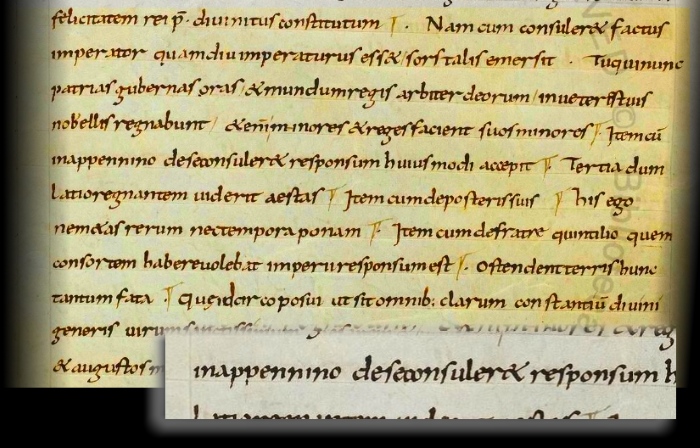 felicitatem rei p̄. diuinitus constitutum . Nam cum consuleret factus
imperator quamdiu imperaturus esset sors talis emersit . Tu qui nunc
patrias gubernas oras et mundum regis arbiter deorum in ueteris tuis
nobellis regnabunt et enim inores et reges facient suos minores . Item cū
in appennino de se consuleret responsum huiusmodi accepit . Tertia dum
latio regnantem uiderit aestas . Item cum de posteris suis . his ego
nem etas rerum nec tempora ponam . Item cum de fratre quintilio quem
consortem habere uolebat imperii responsum est . Ostendent terris hunc
tantum fata . Quę idcirco posui ut sit omnib: clarum constantiū diuini
generis uirum
et augustos
in appennino de se consuleret responsum h